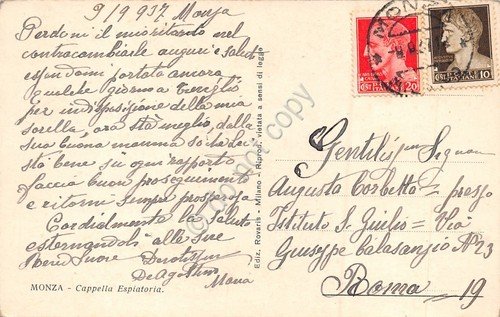 9/9 937 Monza
Perdoni il mio ritardo nel
contracambiarle auguri e saluti
essendomi portata ancora
qualche giorno a Treviglio
per indisposizione della mia
sorella, ora sta meglio, dalla
sua buona mamma so che Lei
sta bene su ogni rapporto
faccia buon proseguimento
e ritorni sempre prosperosa
Cordialmente la Saluto
esternandoli alle Sue
Rev. Suore
De Agostino
Maria
MONZA - Cappella Espiatoria.
Ediz. Rovaris - Milano - Riprod. vietata a sensi di legge
MONZA
POSTE ITALIANE
CENT. 20
POSTE ITALIANE
CENT. 10
Gentilis. Signora
Augusta Corbetta = presso
Istituto S. Giulio = Via
Giuseppe Calasanzio N. 23
Roma 19
do not copy